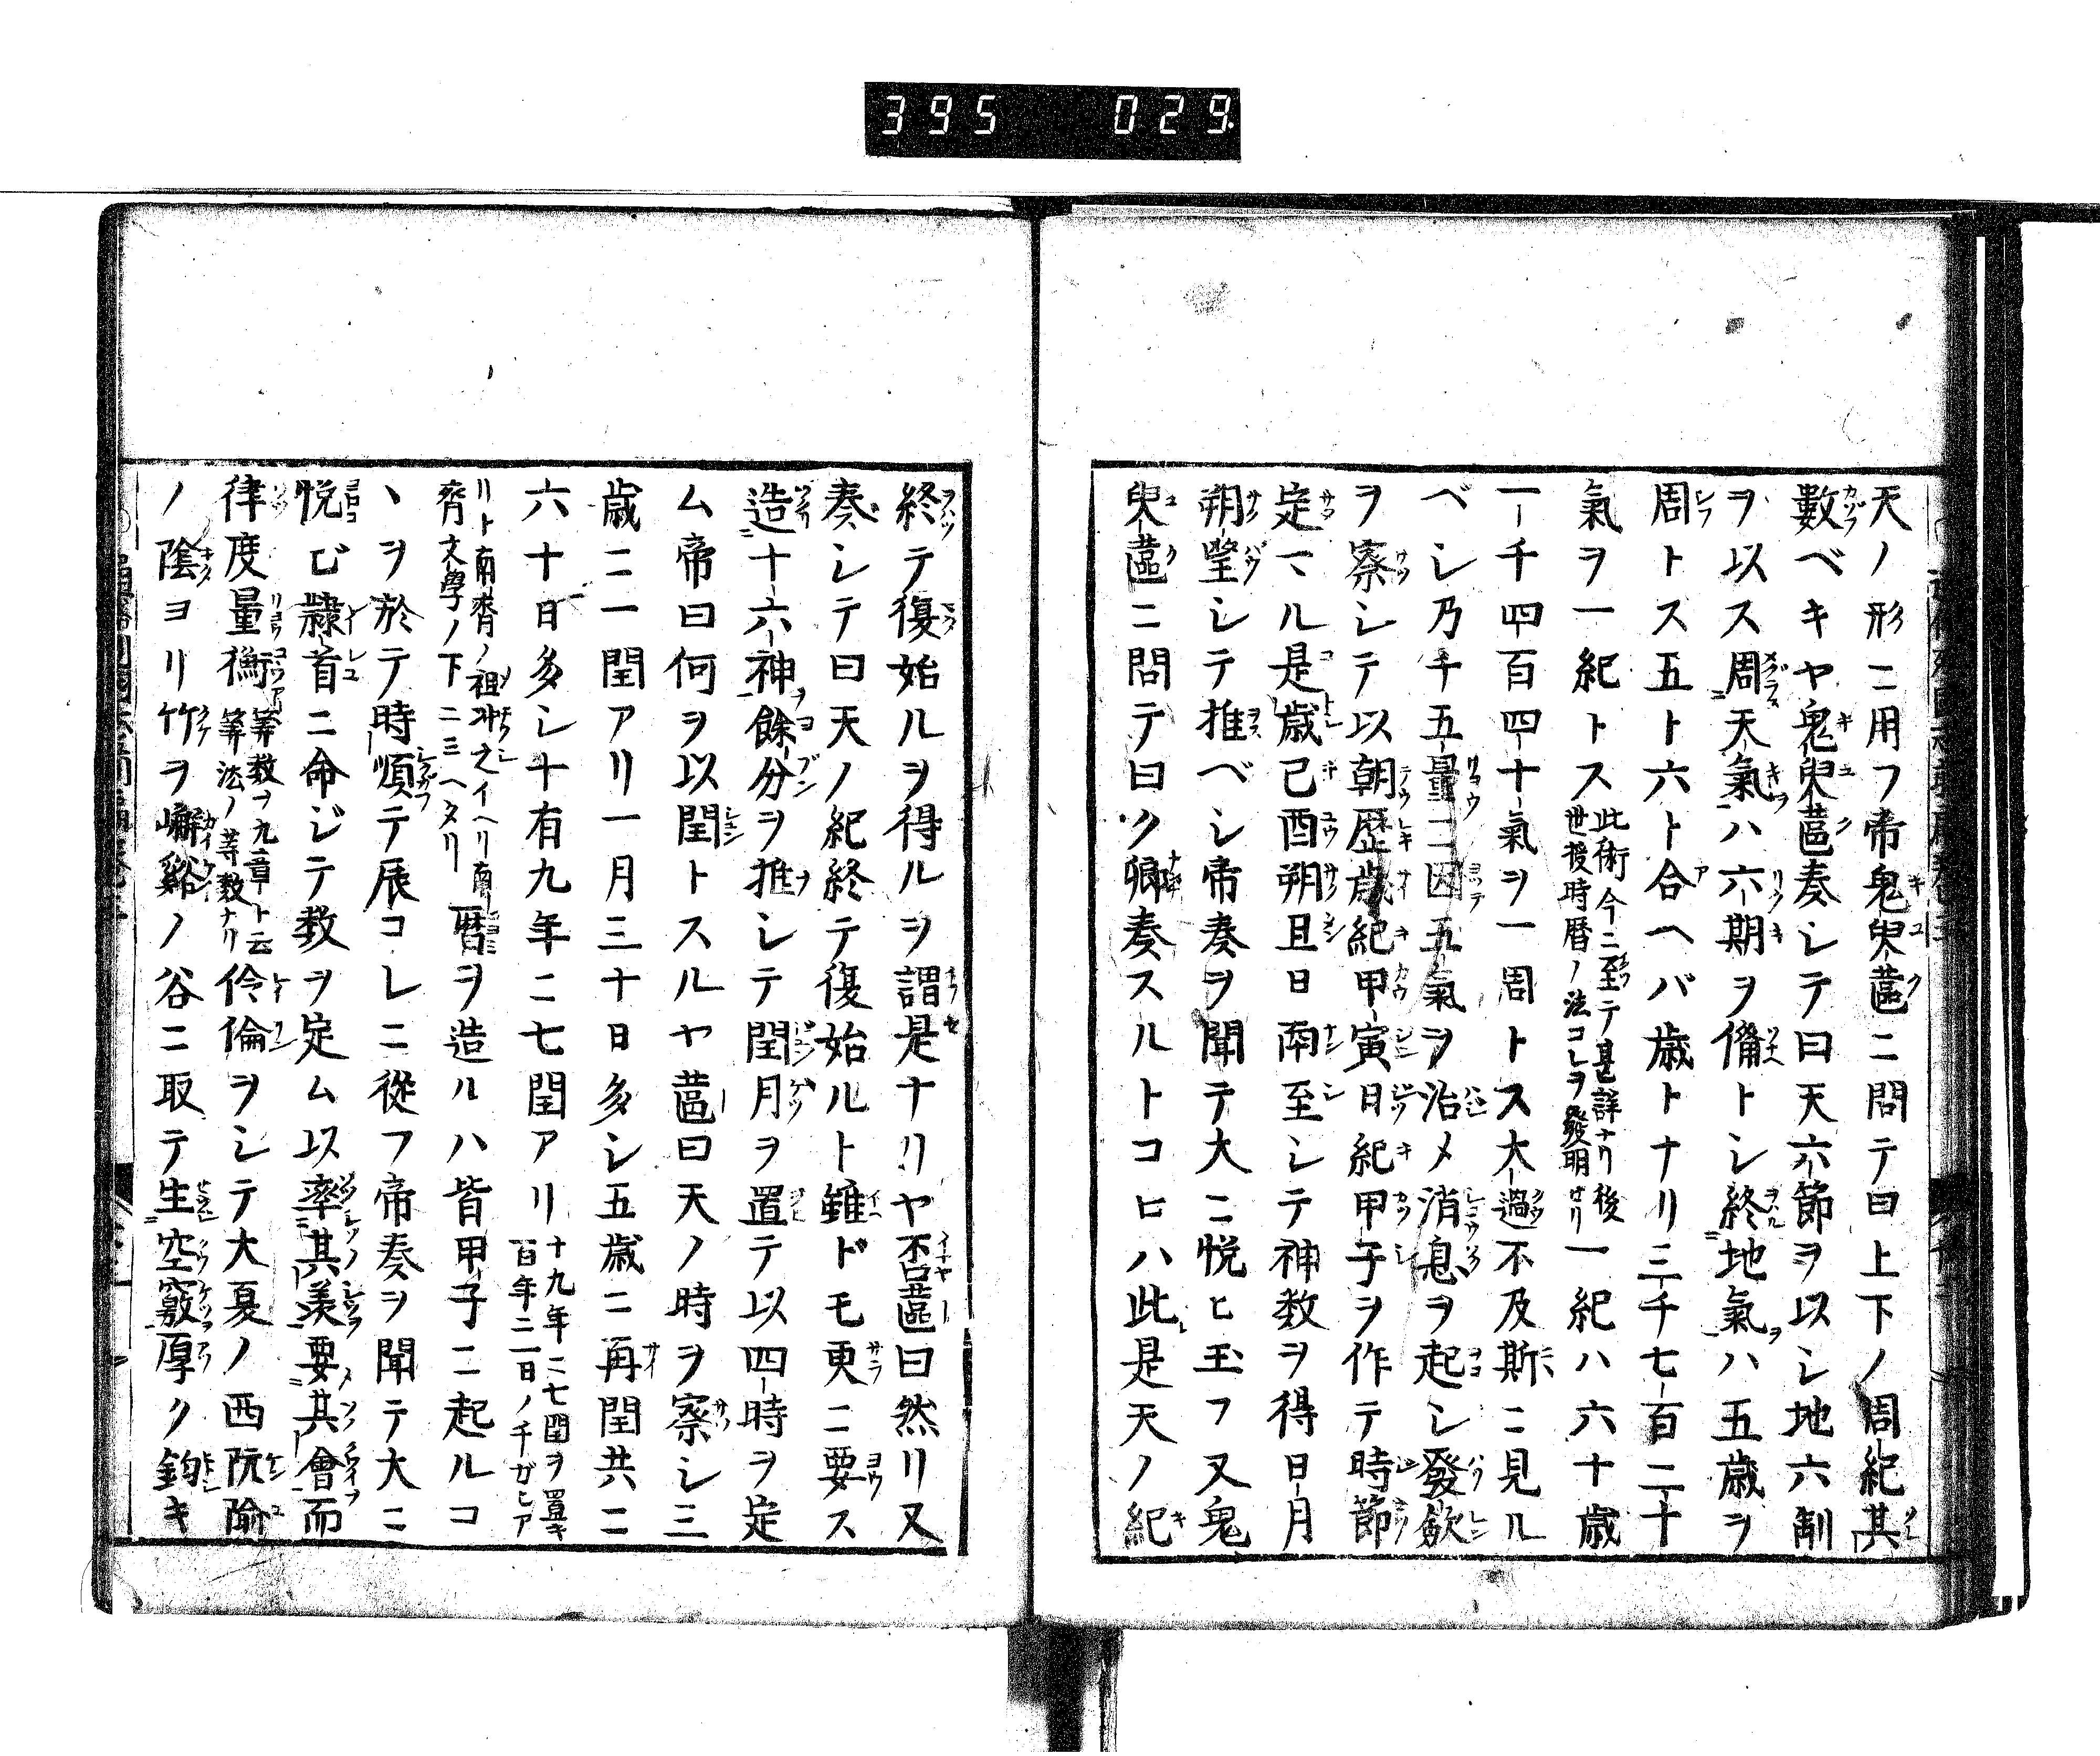 395 029
天ノ形ニ用フ帝鬼臾蓲ニ問テ曰上下ノ周紀其
數ベキヤ鬼臾蓲奏シテ曰天六節ヲ以シ地六制
ヲ以ス周天氣ハ六期ヲ備トシ終地氣ハ五歳ヲ
周トス五ト六ト合ヘバ歳トナリ三千七百二十
氣ヲ一紀トス此術今ニ至テ甚詳ナリ後世授時暦ノ法コレヲ發明セリ一紀ハ六十歳
一千四百四十氣ヲ一周トス大過不及斯ニ見ル
ベシ乃チ五量ニ因五氣ヲ治メ消息ヲ起シ發斂
ヲ察シテ以朝歴歳紀甲寅日紀甲子ヲ作テ時節
定マル是歳己酉朔旦日南至シテ神数ヲ得日月
朔望シテ推ベシ帝奏ヲ聞テ大ニ悦ヒ玉フ又鬼
臾蓲ニ問テ曰ク卿奏スルトコヒハ此是天ノ紀
終テ復始ルヲ得ルヲ謂是ナリヤ否蓲曰然リ又
奏シテ曰天ノ紀終テ復始ルト雖ドモ更ニ要ス
造十六神餘分ヲ推シテ閏月ヲ置テ以四時ヲ定
ム帝曰何ヲ以閏トスルヤ蓲曰天ノ時ヲ察シ三
歳ニ一閏アリ一月三十日多シ五歳ニ再閏共ニ
六十日多シ十有九年ニ七閏アリ十九年ニ七閏ヲ置キ百年ニ一日ノ千ガヒア
リト南齊ノ祖冲之イヘリ南齊文學ノ下ニ三ヘタリ暦ヲ造ルハ皆甲子ニ起ルコ
ヽヲ於テ時順テ展コレニ從フ帝奏ヲ聞テ大ニ
悦ビ隷首ニ命ジテ数ヲ定ム以率其羨要其會而
律度量衡等数ヲ九章ト云筭法ノ等数ナリ伶倫ヲシテ大夏ノ西阮隃
ノ陰ヨリ竹ヲ嶰谿ノ谷ニ取テ生空竅厚ク鈞キ